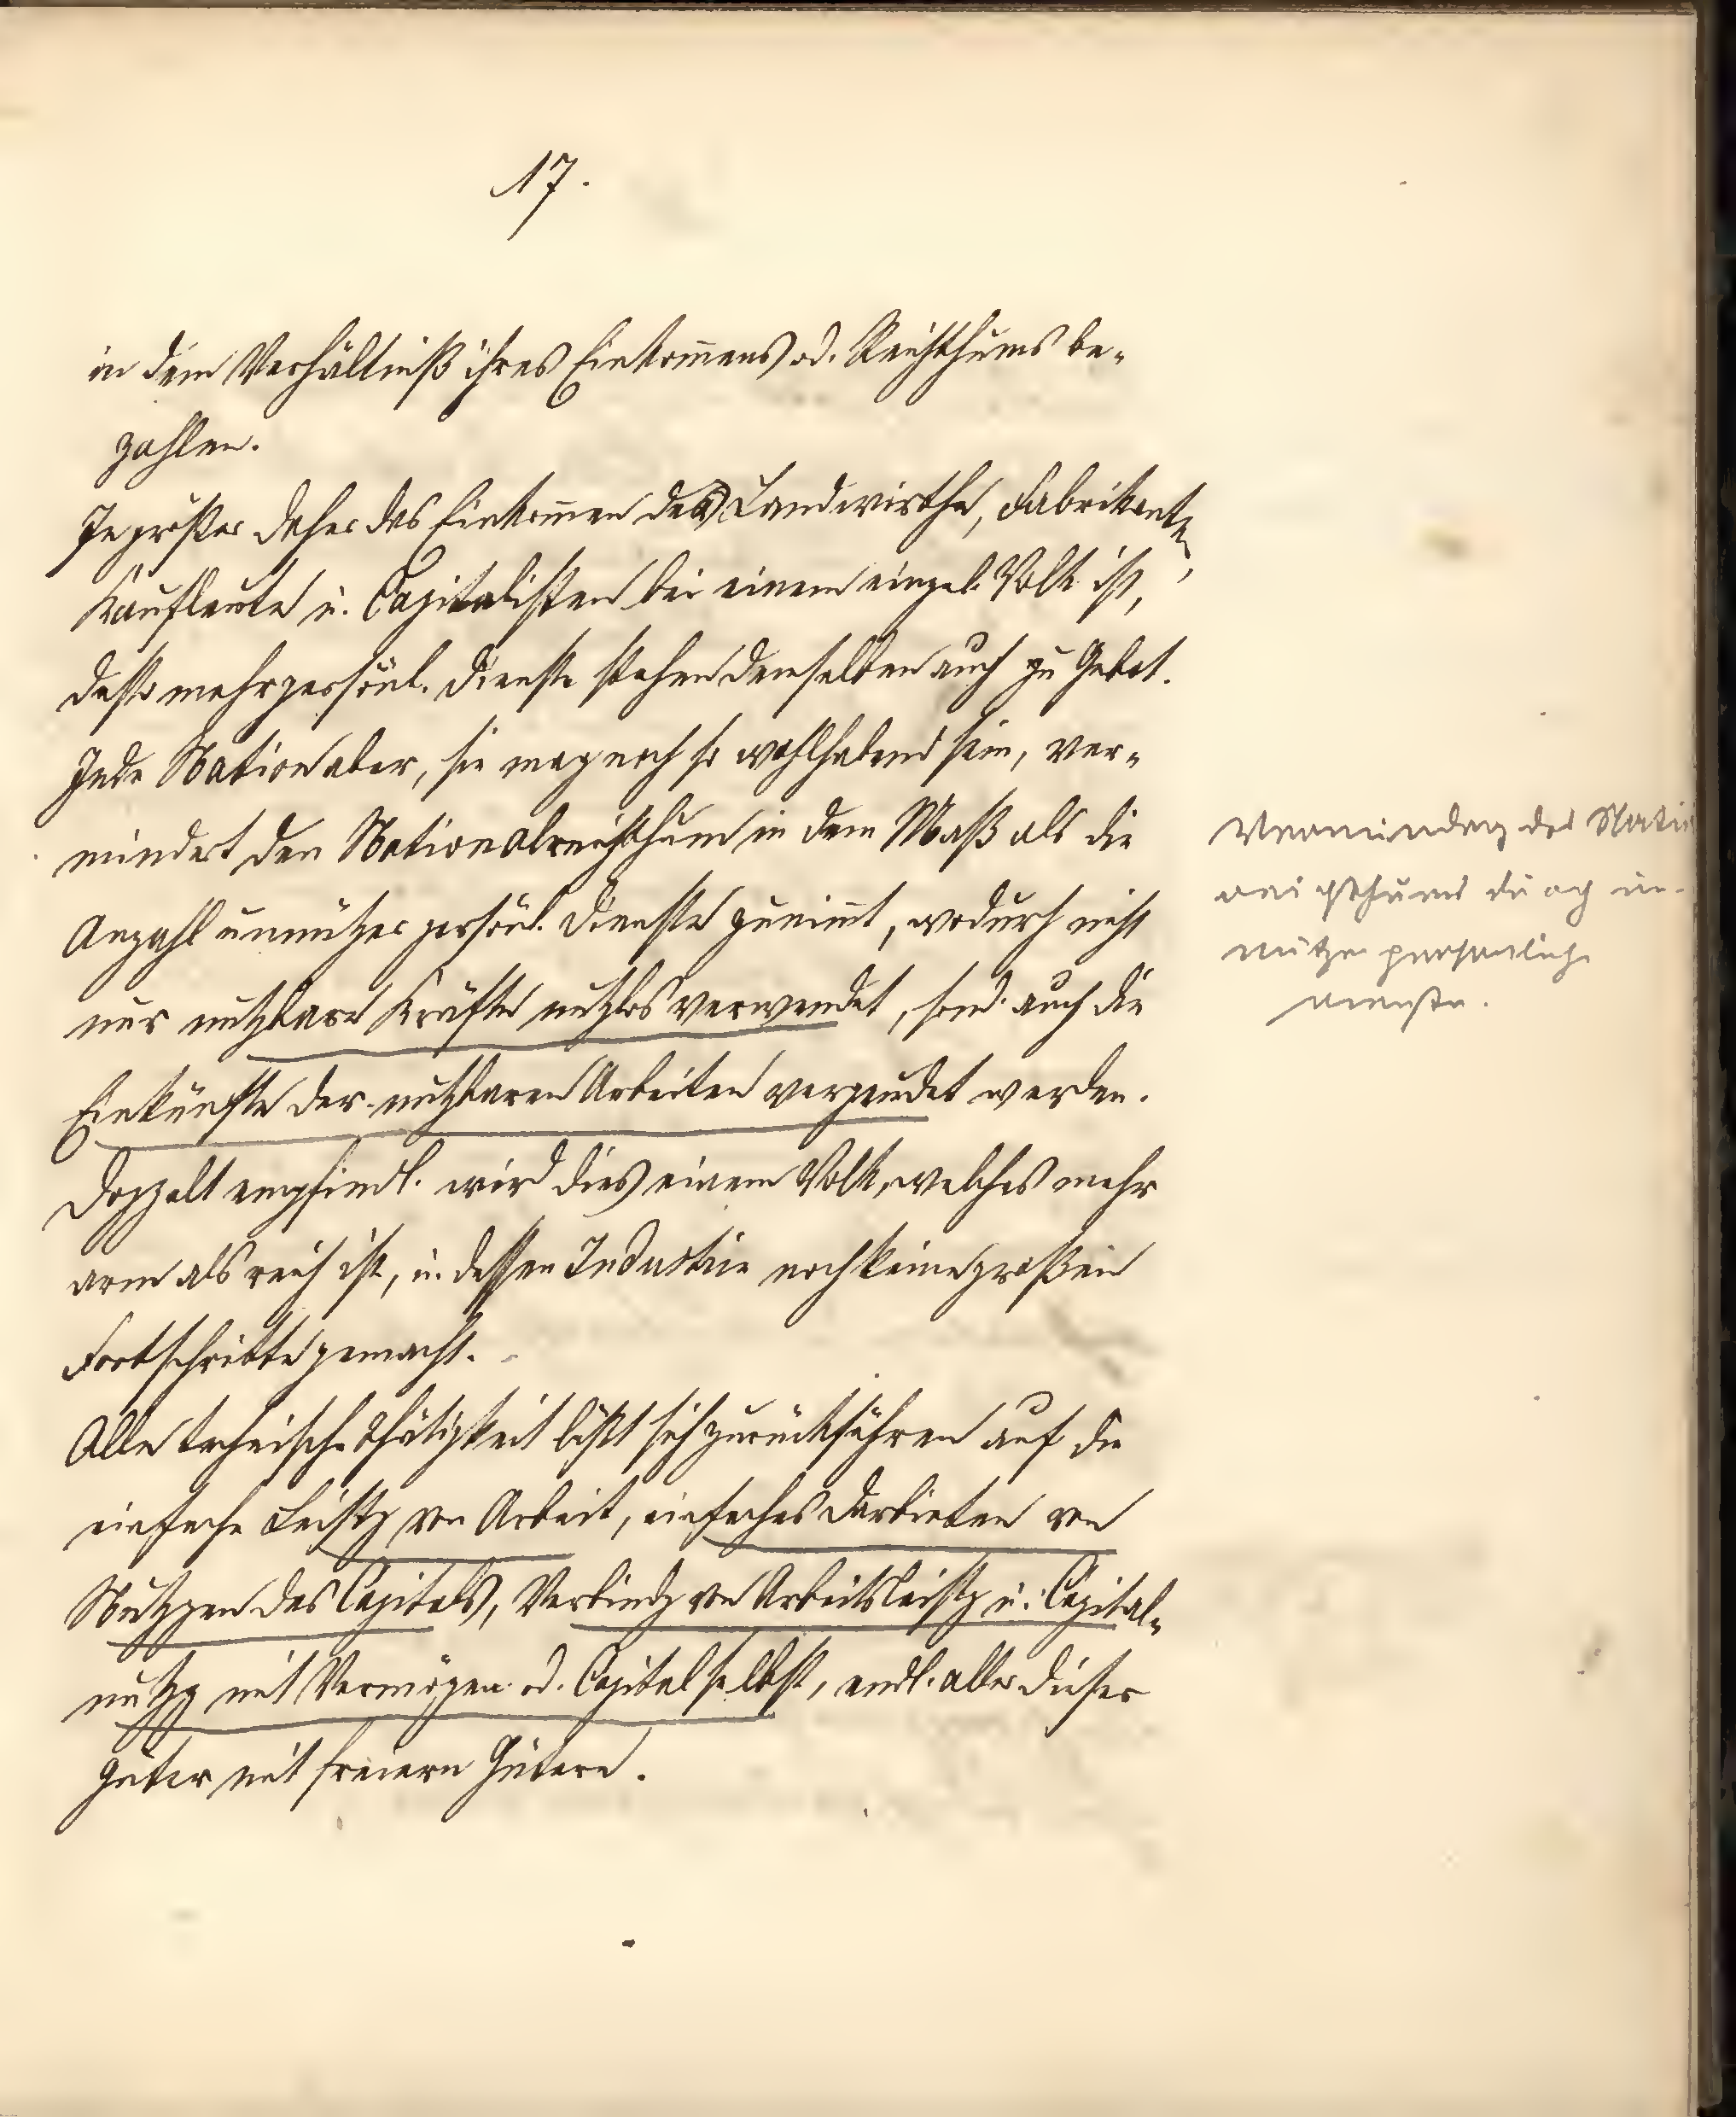 17.
in dem Verhältniß ihres Einkom̅ens od. Reichthums be-
zahlen.
Je größer daher das Einkom̅en der Landwirthe, Fabrikanten,
Kaufleute u. Capitalisten bei einem einzel. Volk ist,
desto mehr persönl. Dienste stehen demselben auch zu Gebot.
Jede Nation aber, sie mag noch so wohlhabend sein, ver-
mindert den Nationalreichthum in dem Maß als die
Anzahl unnützer persönl. Dienste zunim̅t, wodurch nicht
nur nutzbare Kräfte nutzlos verwendet, sond. auch die
Einkünfte der nutzbaren Arbeiten vergeudet werden.
Doppelt empfindl. wird dies einem Volk, welches mehr
arm als reich ist, u. dessen Industrie noch keine großen
Fortschritte gemacht.
Alle technische Thätigkeit läßt sich zurückführen auf die
einfache Leistg von Arbeit, einfaches Darbieten von
Nutzgen des Capitals, Verbindg von Arbeitsleistg u. Capital-
nutzg mit Vermögen od. Capital selbst, endl. aller dieser
Güter mit freiern Gütern.
Vermindrg des Natio
reichthums durch un-
nütze persönliche
Dienste.